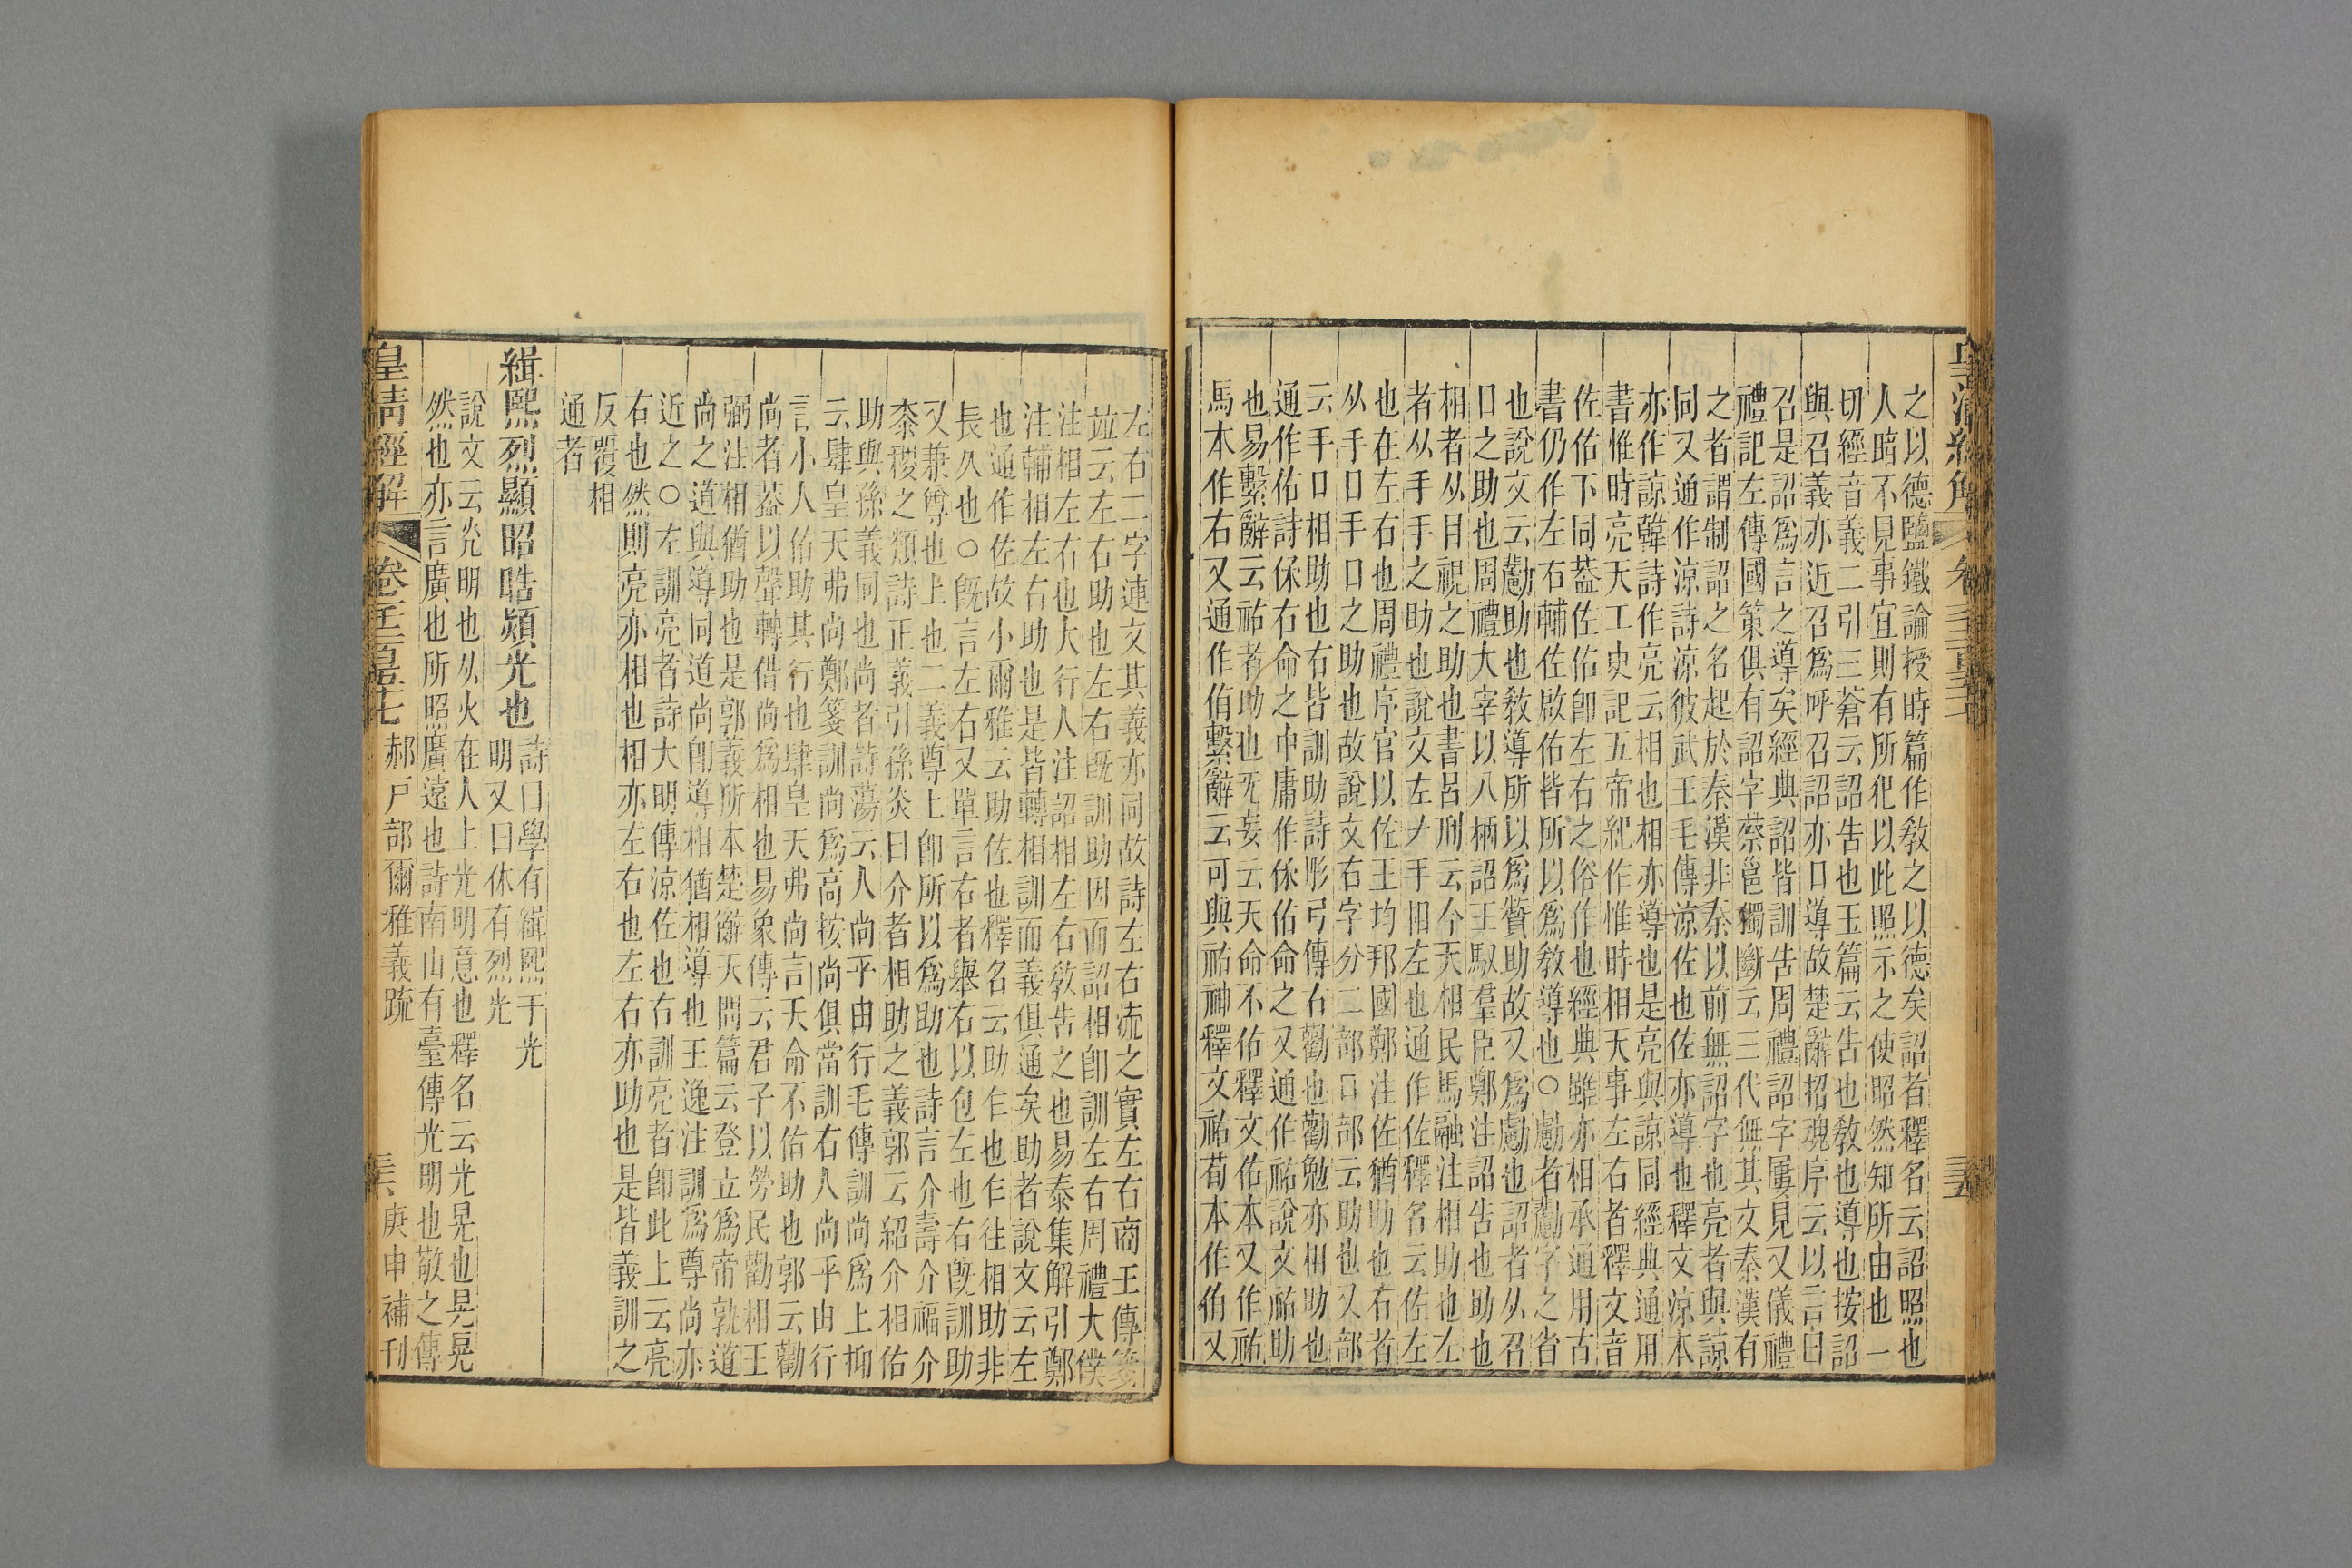 之以德鹽鐵論授時篇作教之以德矣詔者釋名云詔照也
人暗不見事宜則有所犯以此照示之使昭然知所由也一
切經音義二引三蒼云詔告也玉篇云告也教也導也按詔
與召義亦近召爲呼召詔亦口導故楚辭招魂序云以言曰
召是詔爲言之導矣經典詔皆訓告周禮詔字屢見又儀禮
禮記左傳國策俱有詔字蔡邕獨斷云三代無其文秦漢有
之者謂制詔之名起於秦漢非秦以前無詔字也亮者與諒
同又通作涼詩涼彼武王毛傳涼佐也佐亦導也釋文涼本
亦作諒韓詩作亮云相也相亦導也是亮與諒同經典通用
書惟時亮天工史記五帝紀作惟時相天事左右者釋文音
佐佑下同葢佐佑卽左右之俗作也經典雖亦相承通用古
書仍作左右輔佐啟佑皆所以爲教導也○勴者勴字之省
也說文云勴助也教導所以爲贊助故又爲勴也詔者从召
口之助也周禮大宰以八柄詔王馭羣臣鄭注詔告也助也
相者从目視之助也書呂刑云今天相民馬融注相助也左
者从手手之助也說文左𠂇手相左也通作佐釋名云佐左
也在左右也周禮序官以佐王均邦國鄭注佐猶助也右者
从手口手口之助也故說文右字分二部口部云助也又部
云手口相助也右皆訓助詩彤弓傳右勸也勸勉亦相助也
通作佑詩保右命之中庸作保佑命之又通作祐說文祐助
也易繫辭云祐者助也无妄云天命不佑釋文佑本又作祐
馬本作右又通作侑繫辭云可與祐神釋文祐荀本作侑又
皇清經解
三五
左右二字連文其義亦同故詩左右流之實左右商王傳箋
竝云左右助也左右旣訓助因而詔相卽訓左右周禮大僕
注相左右也大行人注詔相左右教告之也易泰集解引鄭
注輔相左右助也是皆轉相訓而義俱通矣助者說文云左
也通作佐故小爾雅云助佐也釋名云助乍也乍往相助非
長久也○旣言左右又單言右者舉右以包左也右旣訓助
又兼尊也上也二義尊上卽所以爲助也詩言介壽介福介
黍稷之類詩正義引孫炎曰介者相助之義郭云紹介相佑
助與孫義同也尚者詩蕩云人尚乎由行毛傳訓尚爲上抑
云肆皇天弗尚鄭箋訓尚爲高按尚俱當訓右人尚乎由行
言小人佑助其行也肆皇天弗尚言天命不佑助也郭云勸
尚者葢以聲轉借尚爲相也易象傳云君子以勞民勸相王
弼注相猶助也是郭義所本楚辭天問篇云登立爲帝孰道
尚之道與導同道尚卽導相猶相導也王逸注訓爲尊尚亦
近之○左訓亮者詩大明傳涼佐也右訓亮者卽此上云亮
右也然則亮亦相也相亦左右也左右亦助也是皆義訓之
反覆相
通者
緝熙烈顯昭晧熲光也
詩曰學有緝熙于光
明又曰休有烈光
說文云光明也从火在人上光明意也釋名云光晃也晃晃
然也亦言廣也所照廣遠也詩南山有臺傳光明也敬之傳
皇清經解 卷一千二百五十七 郝戸部爾雅義疏 三六 庚申補刊